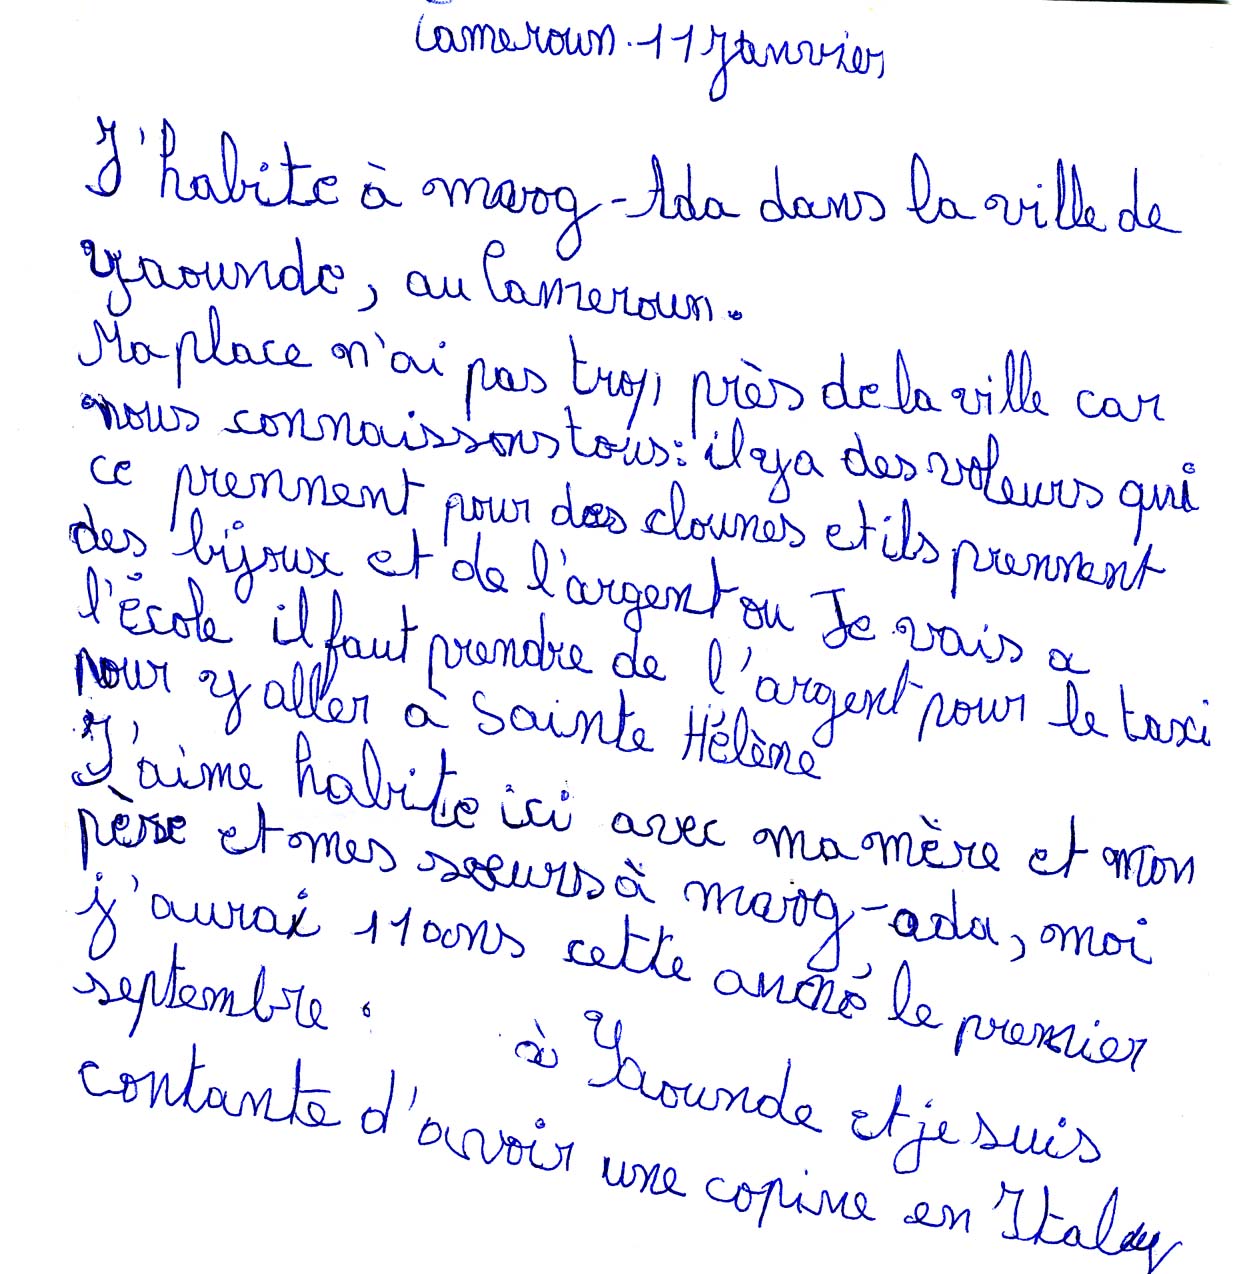 Cameroun. 11 Janvier
J'habite à mvog-Ada dans la ville de
Yaounde, au Cameroun.
Ma place n'ai pas trop près de la ville car
nous connaissons tous: il y a des voleurs qui
ce prennent pour des clounes et ils prennent
des bijoux et de l'argent ou Je vais a
l'École il faut prendre de l'argent pour le taxi
pour y aller à Sainte Hélène
J'aime habite ici avec ma mère et mon
père et mes sœurs à mvog-ada, moi
j'aurai 11 ans cette anné le premier
septembre. à Yaounde et je suis
contante d'avoir une copine en Italy